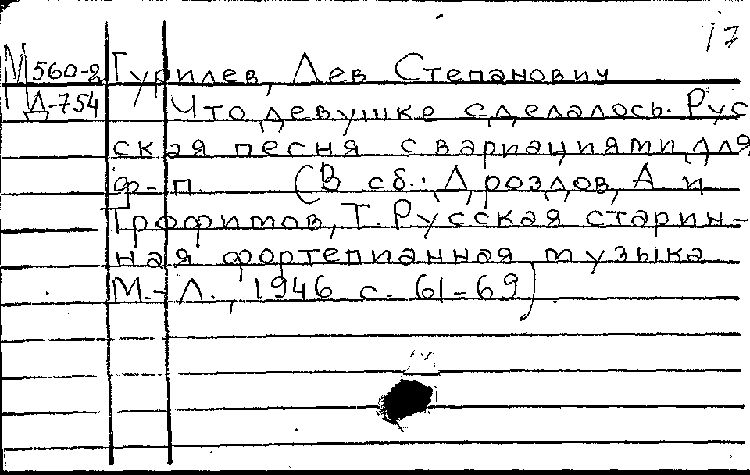 17
М 560-2 Гурилев, Лев Степанович
Д-754 Что девушке сделалось. Рус
ская песня с вариациями для
ф-п. (В сб.: Дроздов, А и
Трофимов, Т. Русская старин-
ная фортепианная музыка
М.-Л., 1946 с. 61-69)